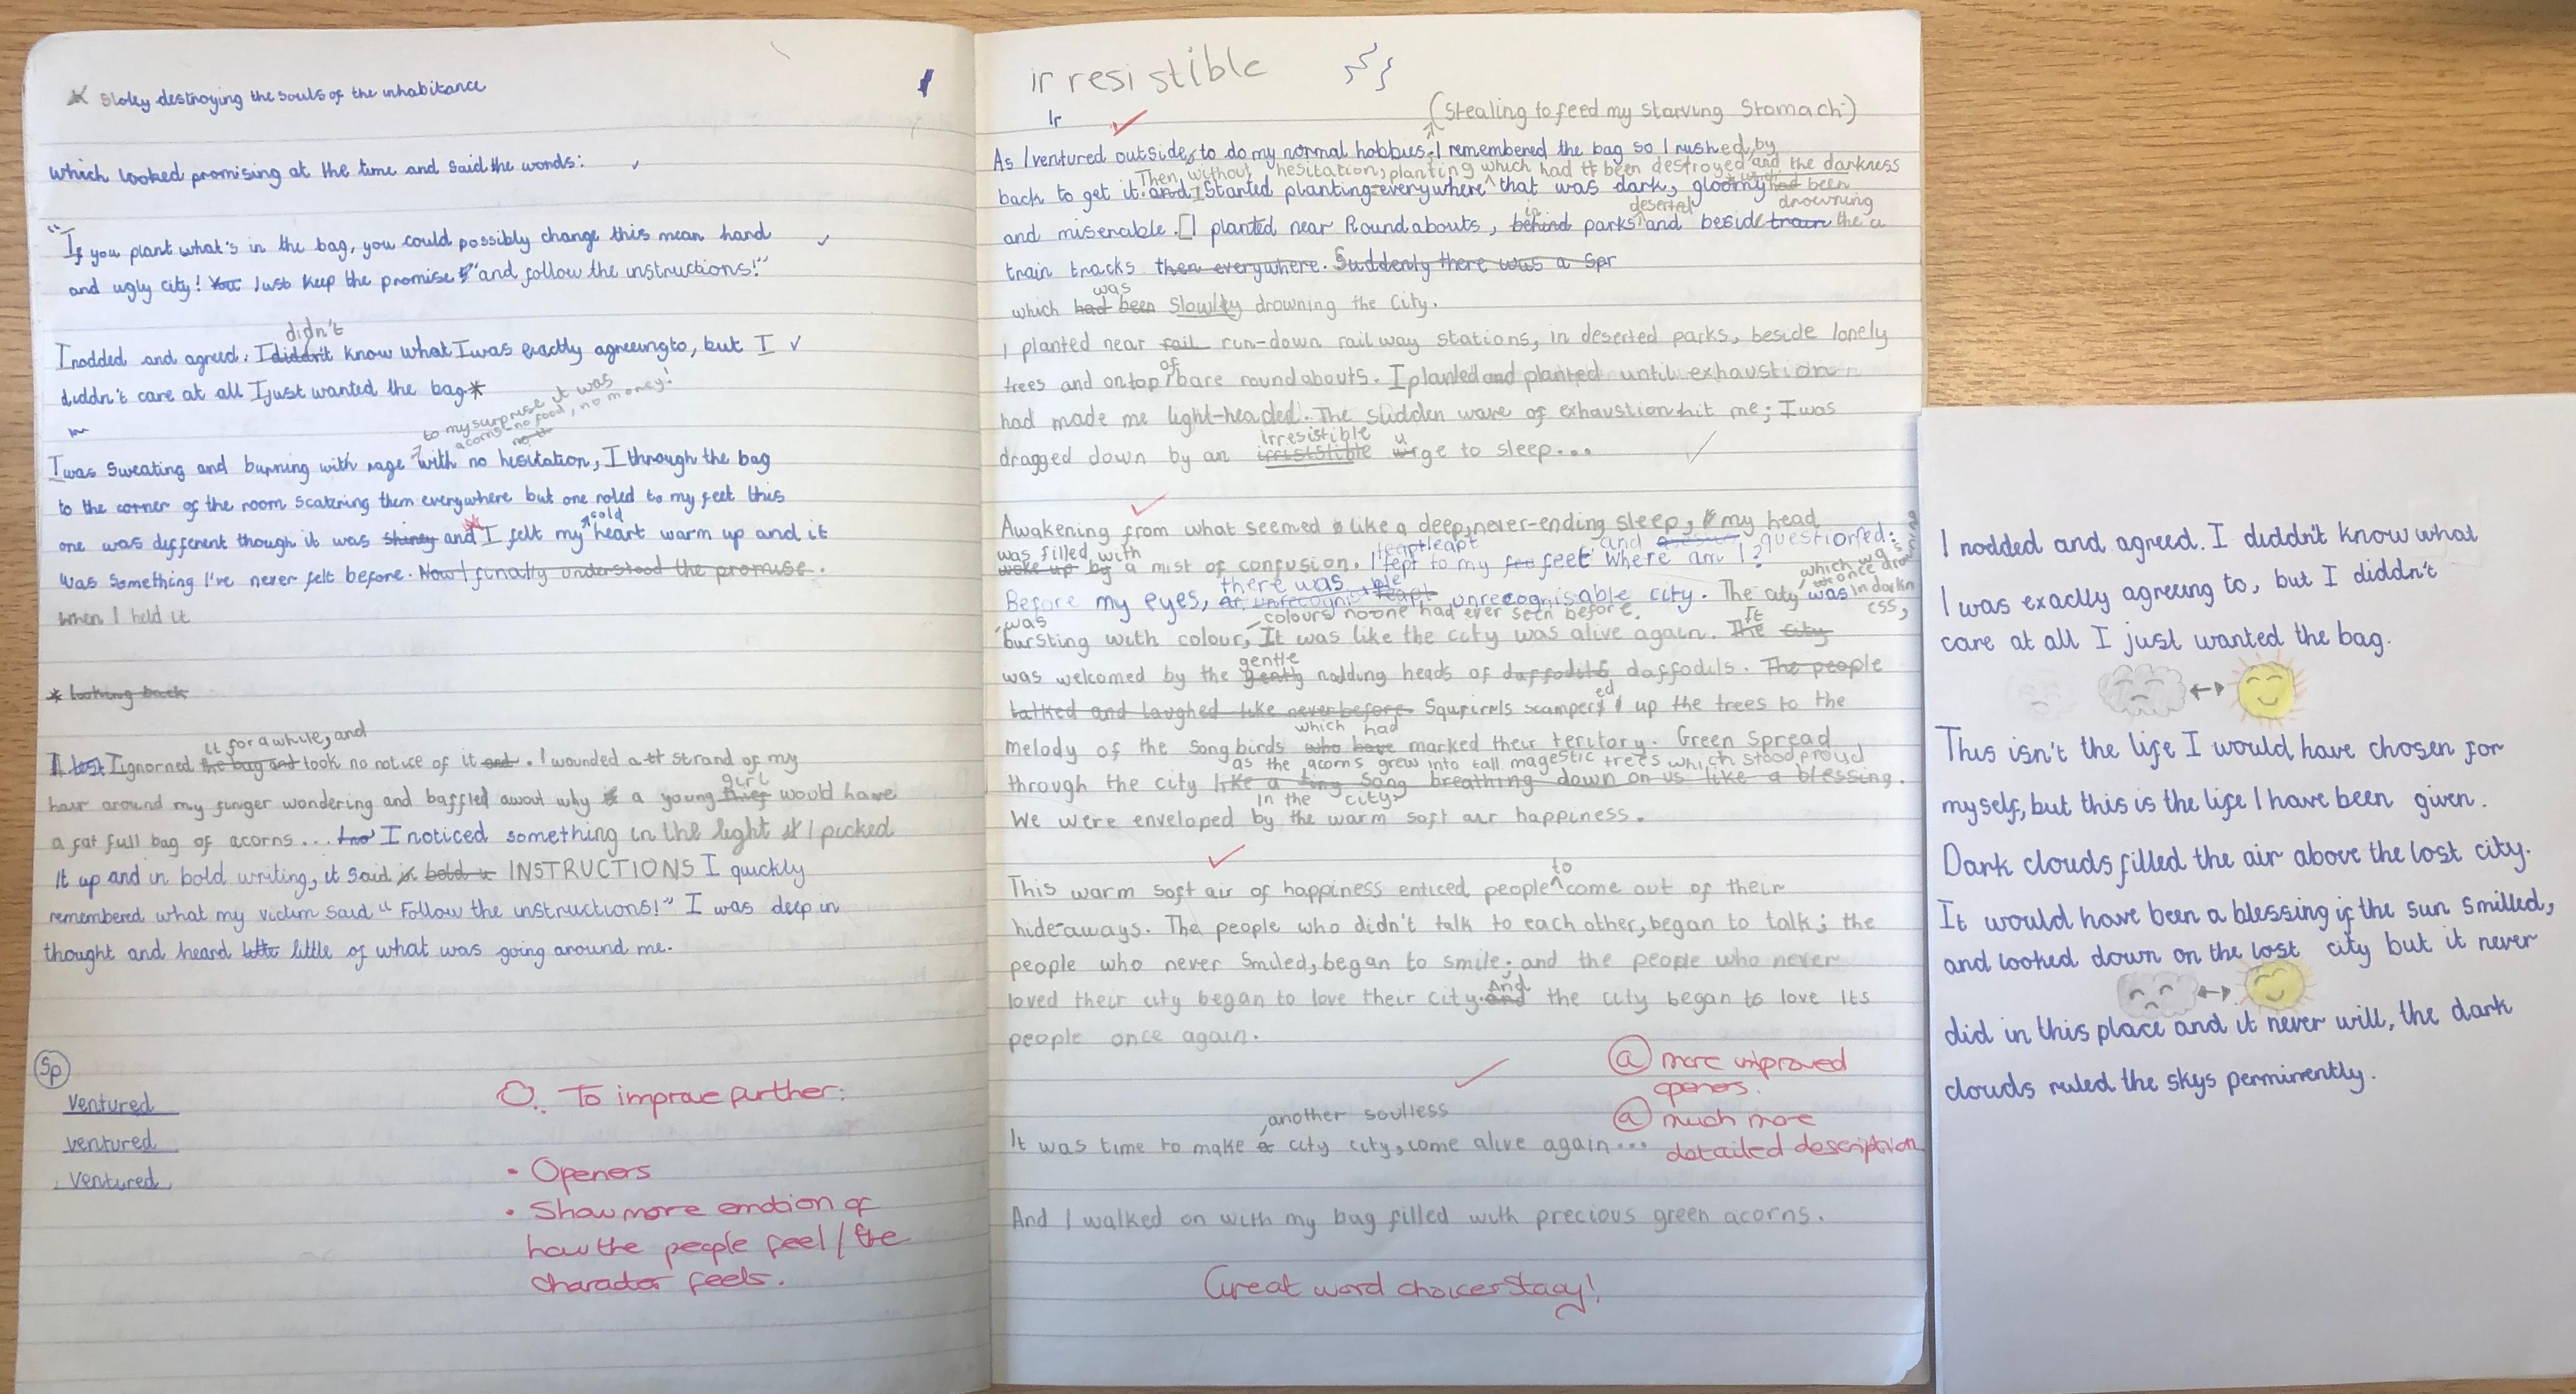 * Sloley destroying the souls of the inhabitance
which looked promising at the time and said the words:
"If you plant what's in the bag, you could possibly change this mean hard
and ugly city! You Just keep the promise "and follow the instructions!"
didn't
I nodded and agreed. I diddn't know what I was exactly agreeing to, but I
diddn't care at all I just wanted the bag*
to my surprise it was
acorns no food, no money!
I was sweating and burning with rage with no hesitation, I through the bag
to the corner of the room scatering them everywhere but one roled to my feet this
cold
one was different though it was shiney and I felt my heart warm up and it
was something I've never felt before. Now I finally understood the promise.
when I held it
* looking back
it for a while, and
I lost I ignorned the bag and took no notice of it and. I wounded a strand of my
girl
hair around my finger wondering and baffled awout why a young thief would have
a fat full bag of acorns... I noticed something in the light I picked
it up and in bold writing, it said in bold INSTRUCTIONS I quickly
remembered what my victim said "Follow the instructions!" I was deep in
thought and heard little of what was going around me.
Sp
Ventured
ventured
Ventured
To improve further:
• Openers
• Show more emotion of
how the people feel / the
character feels.
irresistible
Ir
(Stealing to feed my starving Stomach)
As I ventured outside, to do my normal hobbies, I remembered the bag so I rushed, by
Then, without hesitation, planting which had been destroyed and the darkness
back to get it. and I Started planting everywhere that was dark, gloomy had been
in deserted drowning
and miserable. [I planted near Roundabouts, behind parks and beside train the a
train tracks then everywhere. Suddenly there was a Spr
was
which had been Slowley drowning the City.
I planted near rail run-down railway stations, in deserted parks, beside lonely
of
trees and ontop bare roundabouts. I planted and planted until exhaustion
had made me light-headed. The sudden wave of exhaustion hit me; I was
irresistible u
dragged down by an irresistible urge to sleep...
Awakening from what seemed like a deep, never-ending sleep, my head
was filled with leapt leapt and questioned:
woke up by a mist of confusion. I lept to my feet Where am I?
there was which was once drowning
Before my eyes, unrecognisable city. The city was in darkness,
was colours no one had ever seen before.
bursting with colour, It was like the city was alive again. The city
It
gentle
was welcomed by the nodding heads of daffodils. The people
ed
talked and laughed like never before Squrirrels scamper up the trees to the
which had
melody of the song birds who have marked their teritory. Green spread
as the acorns grew into tall magestic trees which stood proud
through the city like a song breathing down on us like a blessing.
in the city
We were enveloped by the warm soft air happiness.
to
This warm soft air of happiness enticed people come out of their
hide-aways. The people who didn't talk to each other, began to talk; the
people who never smiled, began to smile; and the people who never
And
loved their city began to love their city. and the city began to love its
people once again.
@ more improved
openers.
@ much more
detailed description
another soulless
It was time to make a city city, come alive again...
And I walked on with my bag filled with precious green acorns.
Great word choices Stacy!
I nodded and agreed. I diddn't know what
I was exactly agreeing to, but I diddn't
care at all I just wanted the bag.
This isn't the life I would have chosen for
myself, but this is the life I have been given.
Dark clouds filled the air above the lost city.
It would have been a blessing if the sun smilled,
and looked down on the lost city but it never
did in this place and it never will, the dark
clouds ruled the skys perminently.